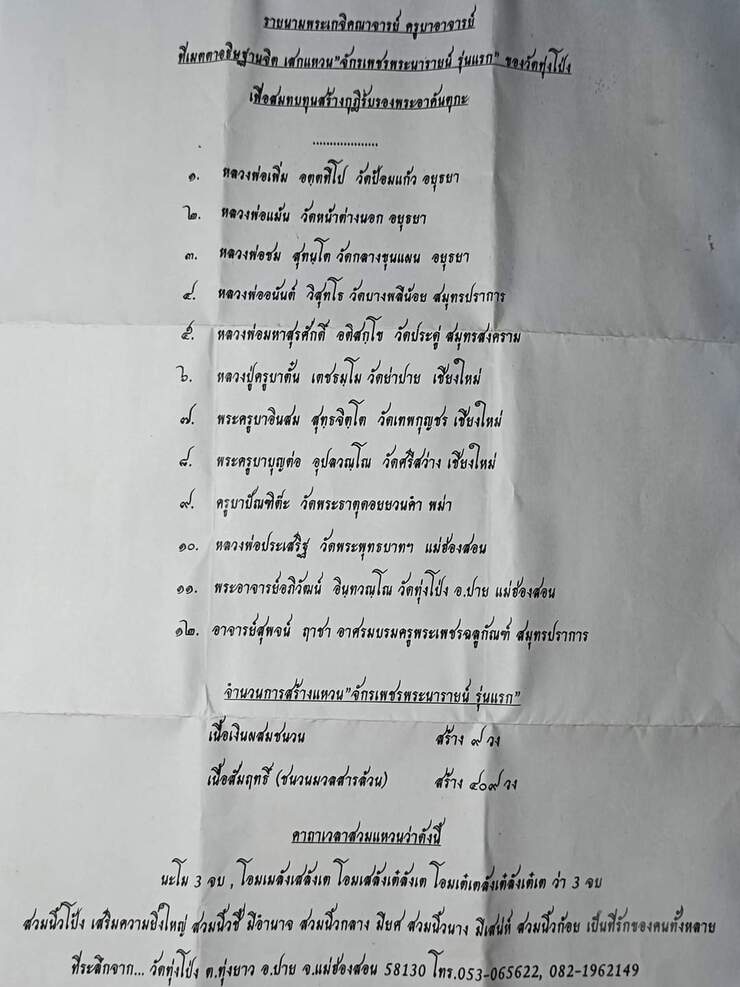 รายนามพระเกจิคณาจารย์ ครูบาอาจารย์
ที่เมตตาอธิษฐานจิต เสกแหวน"จักรเพชรพระนารายน์ รุ่นแรก" ของวัดทุ่งโป่ง
เพื่อสมทบทุนสร้างกุฏิรับรองพระอาคันตุกะ
...................
๑. หลวงพ่อเพิ่ม อตฺตทีโป วัดป้อมแก้ว อยุธยา
๒. หลวงพ่อแม้น วัดหน้าต่างนอก อยุธยา
๓. หลวงพ่อชม สุทนฺโต วัดกลางขุนแผน อยุธยา
๔. หลวงพ่ออนันต์ วิสุทโธ วัดบางพลีน้อย สมุทรปราการ
๕. หลวงพ่อมหาสุรศักดิ์ อติสกฺโข วัดประดู่ สมุทรสงคราม
๖. หลวงปู่ครูบาตั๋น เตชธมฺโม วัดย่าปาย เชียงใหม่
๗. พระครูบาอินสม สุทฺธจิตฺโต วัดเทพกุญชร เชียงใหม่
๘. พระครูบาบุญต่อ อุปลวณฺโณ วัดศรีสว่าง เชียงใหม่
๙. ครูบาปัณฑิต๊ะ วัดพระธาตุดอยยวนคำ พม่า
๑๐. หลวงพ่อประเสริฐ วัดพระพุทธบาทฯ แม่ฮ่องสอน
๑๑. พระอาจารย์อภิวัฒน์ อินฺทวณฺโณ วัดทุ่งโป่ง อ.ปาย แม่ฮ่องสอน
๑๒. อาจารย์สุพจน์ ฤาชา อาศรมบรมครูพระเพชรฉลูกัณฑ์ สมุทรปราการ
จำนวนการสร้างแหวน"จักรเพชรพระนารายน์ รุ่นแรก"
เนื้อเงินผสมชนวน สร้าง ๙ วง
เนื้อสัมฤทธิ์ (ชนวนมวลสารล้วน) สร้าง ๔๐๙ วง
คาถาเวลาสวมแหวนว่าดังนี้
นะโม 3 จบ , โอมเมลังเสลังเต โอมเสลังเต๋ลังเต โอมเต๋เตลังเต๋ลังเต๋เต ว่า 3 จบ
สวมนิ้วโป้ง เสริมความยิ่งใหญ่ สวมนิ้วชี้ มีอำนาจ สวมนิ้วกลาง มียศ สวมนิ้วนาง มีเสน่ห์ สวมนิ้วก้อย เป็นที่รักของคนทั้งหลาย
ที่ระลึกจาก... วัดทุ่งโป่ง ต.ทุ่งยาว อ.ปาย จ.แม่ฮ่องสอน 58130 โทร.053-065622, 082-1962149